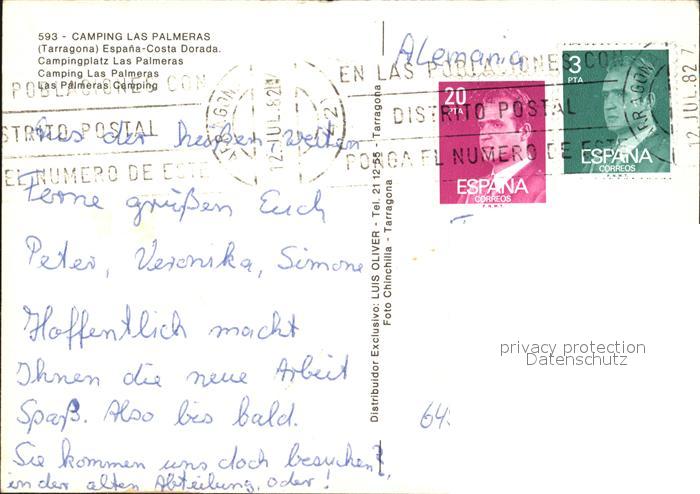 593 - CAMPING LAS PALMERAS
(Tarragona) España-Costa Dorada.
Campingplatz Las Palmeras
Camping Las Palmeras
Las Palmeras Camping
POBLACIONES CON
DISTRITO POSTAL
EL NUMERO DE ESTE
TARRAGONA
12 JUL. 82
EN LAS POBLACIONES CON
DISTRITO POSTAL
PONGA EL NUMERO DE ESTE
TARRAGONA
12 JUL. 82
Alemania
20
PTA
ESPAÑA
CORREOS
F.N.M.T.
3
PTA
ESPAÑA
CORREOS
F.N.M.T.
Aus der heißen, weiten
Ferne grüßen Euch
Peter, Veronika, Simone
Hoffentlich macht
Ihnen die neue Arbeit
Spaß. Also bis bald.
Sie kommen uns doch besuchen?,
in der alten Abteilung, oder!
Distribuidor Exclusivo: LUIS OLIVER - Tel. 21 12 55 - Tarragona
Foto Chinchilla - Tarragona
privacy protection
Datenschutz